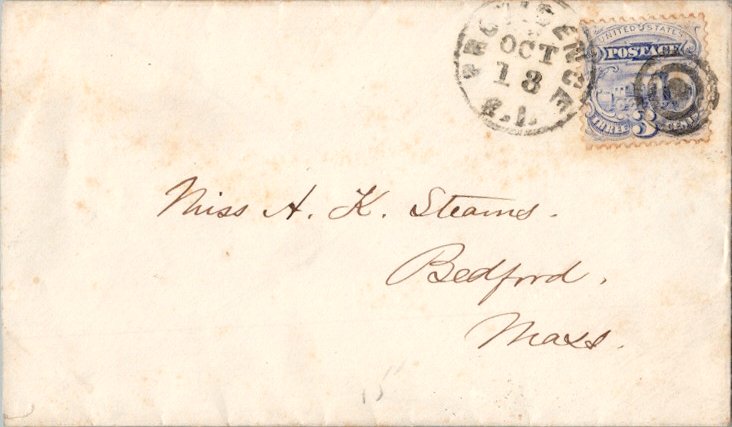 PROVIDENCE
OCT
13
R.I.
UNITED STATES
POSTAGE
THREE 3 CENTS
Miss A. K. Stearns.
Bedford.
Mass.
15